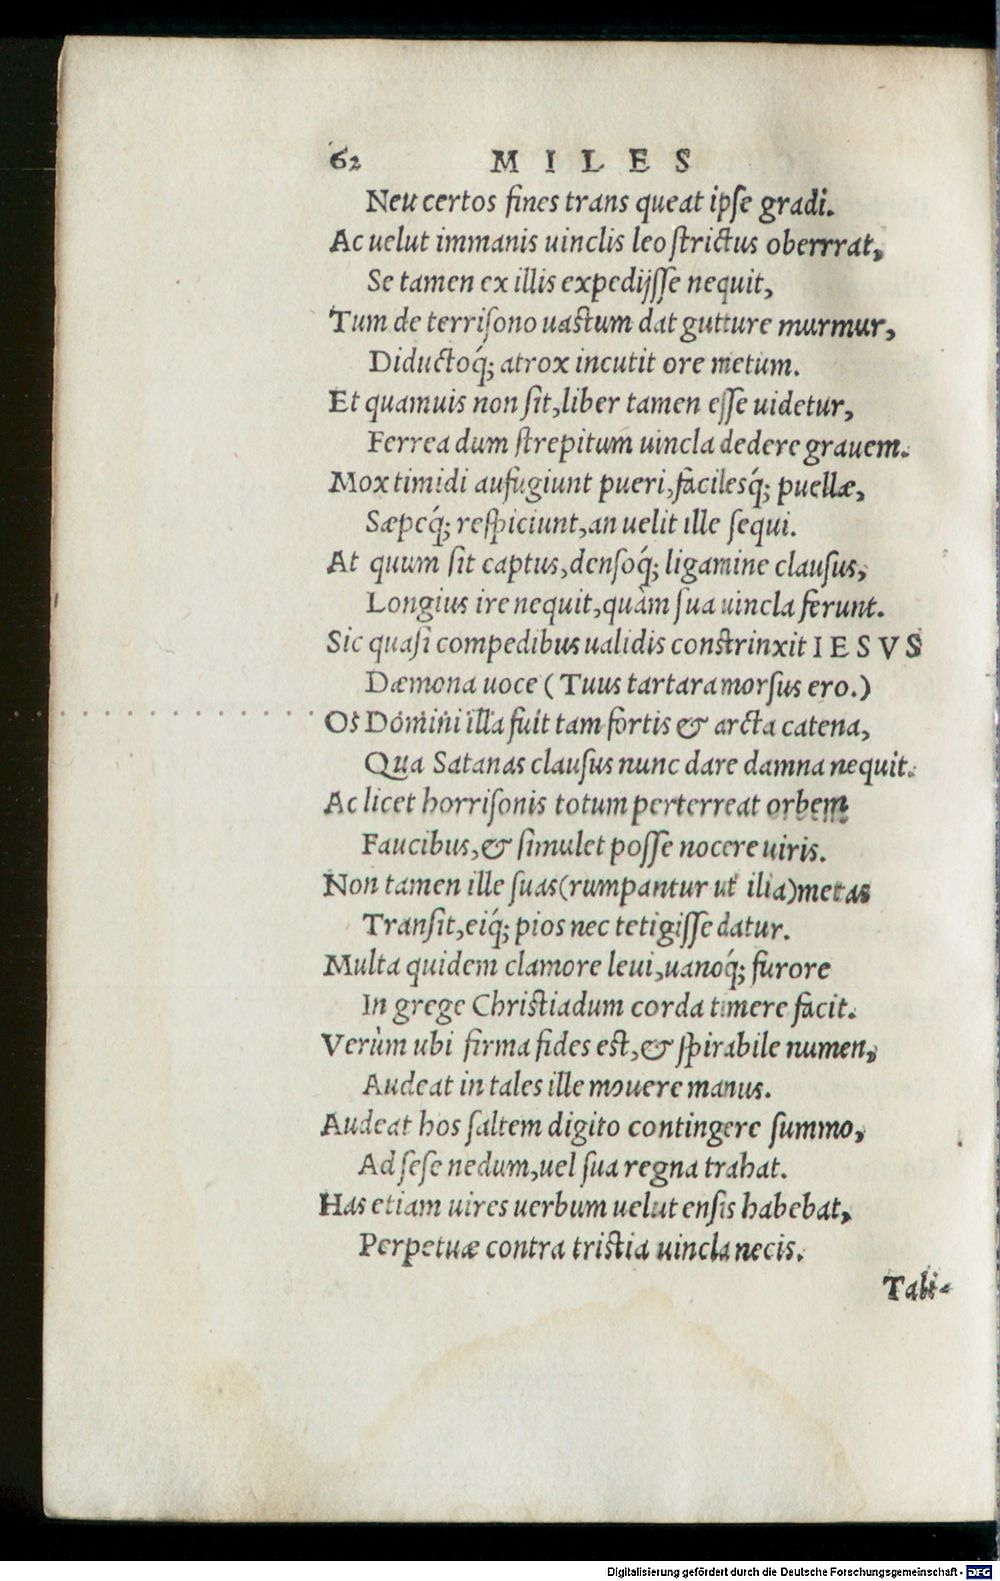 62 MILES
Neu certos fines trans queat ipſe gradi.
Ac uelut immanis uinclis leo ſtrictus oberrrat,
Se tamen ex illis expedijſſe nequit,
Tum de terriſono uastum dat gutture murmur,
Diductoq́; atrox incutit ore metum.
Et quamuis non ſit, liber tamen eſſe uidetur,
Ferrea dum ſtrepitum uincla dedere grauem.
Mox timidi aufugiunt pueri, facilesq́; puellæ,
Sæpeq́; reſpiciunt, an uelit ille ſequi.
At quum ſit captus, denſoq́; ligamine clauſus,
Longius ire nequit, quàm ſua uincla ferunt.
Sic quaſi compedibus ualidis constrinxit IESVS
Dæmona uoce (Tuus tartara morſus ero.)
Os Domini illa fuit tam fortis & arcta catena,
Qua Satanas clauſus nunc dare damna nequit.
Ac licet horriſonis totum perterreat orbem
Faucibus, & ſimulet poſſe nocere uiris.
Non tamen ille ſuas (rumpantur ut ilia) metas
Tranſit, eiq́; pios nec tetigiſſe datur.
Multa quidem clamore leui, uanoq́; furore
In grege Christiadum corda timere facit.
Verùm ubi firma fides est, & ſpirabile numen,
Audeat in tales ille mouere manus.
Audeat hos ſaltem digito contingere ſummo,
Ad ſeſe nedum, uel ſua regna trahat.
Has etiam uires uerbum uelut enſis habebat,
Perpetuæ contra tristia uincla necis.
Tali-
Digitalisierung gefördert durch die Deutsche Forschungsgemeinschaft - DFG